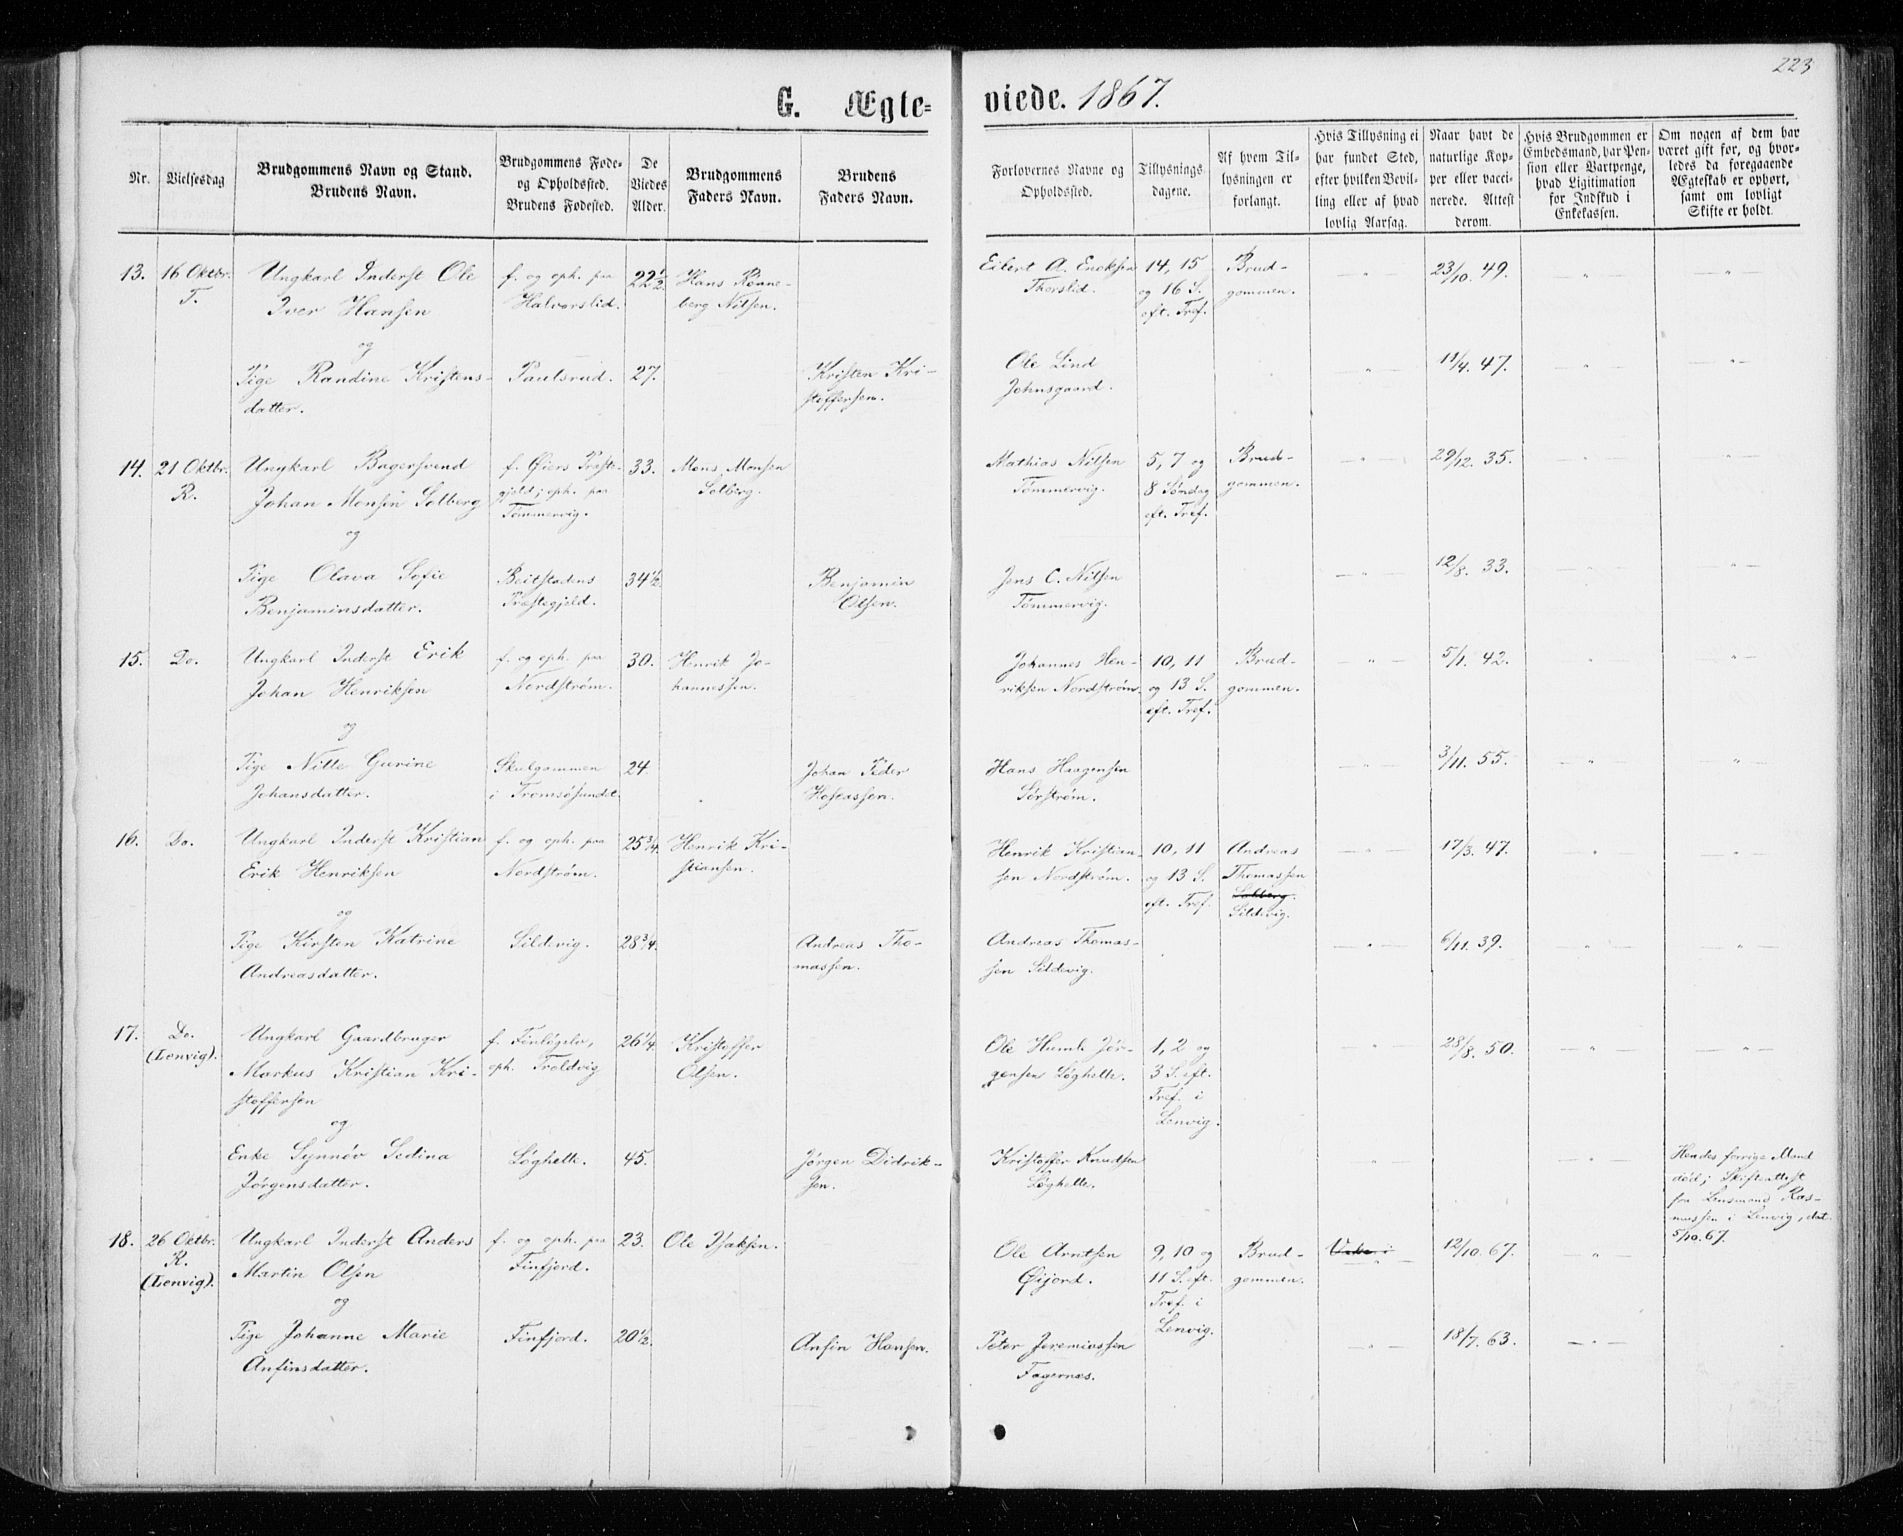 223
G. Ægte=
viede. 1867.
Nr.
Vielsesdag
Brudgommens Navn og Stand.
Brudens Navn.
Brudgommens Føde-
og Opholdssted.
Brudens Fødested.
De
Viedes
Alder.
Brudgommens
Faders Navn.
Brudens
Faders Navn.
Forlovernes Navne og
Opholdssted.
Tillysnings
dagene.
Af hvem Til-
lysningen er
forlangt.
Hvis Tillysning ei
har fundet Sted,
efter hvilken Bevil-
ling eller af hvad
lovlig Aarsag.
Naar havt de
naturlige Kop-
per eller vacci-
nerede. Attest
derom.
Hvis Brudgommen er
Embedsmand, har Pen-
sion eller Vartpenge,
hvad Ligitimation
for Indskud i
Enkekassen.
Om nogen af dem har
været gift før, og hvor-
ledes da foregaaende
Ægteskab er ophørt,
samt om lovligt
Skifte er holdt.
13.
16 Oktbr.
T.
Ungkarl Inderst Ole
Iver Hansen
f. og oph. paa
Halvorslid.
22½
Hans Rønne-
berg Nilsen.
Eilert A. Enoksen
Thorslid.
14, 15
og 16 S.
eft. Tref.
Brud-
gommen.
23/10. 49.
og
Pige Randine Kristens-
datter.
Paulsrud.
27.
Kristen Kri-
stoffersen.
Ole Lind
Johnsgaard.
11/4. 47.
14.
21 Oktbr.
R.
Ungkarl Bagersvend
Johan Monsen Solberg
f. Øiers Præste-
gjeld; oph. paa
Tømmervig.
33.
Mons Monsen
Solberg.
Mathias Nilsen
Tømmervig.
5, 7 og
8 Søndag
eft. Tref.
Brud-
gommen.
29/12. 35.
og
Pige Olava Sofie
Benjaminsdatter.
Beitstadens
Præstegjeld.
34½
Benjamin
Olsen.
Jens C. Nilsen
Tømmervig.
12/8. 33.
15.
Do.
Ungkarl Inderst Erik
Johan Henriksen
f. og oph. paa
Nordstrøm.
30.
Henrik Jo-
hannessen.
Johannes Hen-
riksen Nordstrøm.
10, 11
og 13 S.
eft. Tref.
Brud-
gommen.
5/1. 42.
og
Pige Nille Gurine
Johansdatter.
Skulgammen
i Tromsøsundet.
24.
Johan Peder
Hoseassen.
Hans Haagensen
Sørstrøm.
3/11. 55.
16.
Do.
Ungkarl Inderst Kristian
Erik Henriksen
f. og oph. paa
Nordstrøm.
25¾.
Henrik Kri-
stiansen.
Henrik Kristian-
sen Nordstrøm.
10, 11
og 13 S.
eft. Tref.
Andreas
Thomassen
Sildevig.
17/3. 47.
og
Pige Kirsten Katrine
Andreasdatter.
Sildevig.
28¾.
Andreas Tho-
massen.
Andreas Thomas-
sen Sildevig.
6/11. 39.
17.
Do.
(Lenvig).
Ungkarl Gaardbruger
Markus Kristian Kri-
stoffersen
f. Finligelv,
oph. Troldvig
26¼.
Kristoffer
Olsen.
Ole Humb. Jør-
gensen Løghelle.
1, 2 og
3 S. eft.
Tref. i
Lenvig.
28/8. 50.
og
Enke Synnøv Sedina
Jørgensdatter.
Løghelle.
45.
Jørgen Didrik-
sen.
Kristoffer Knudsen
Løghelle.
Hendes forrige Mand
død; Skifteattest
fra Lensmand Ras-
mussen i Lenvig, dat.
5/10. 67.
18.
26 Oktbr.
R.
(Lenvig).
Ungkarl Inderst Anders
Martin Olsen
f. og oph. paa
Finfjord.
23.
Ole Isaksen.
Ole Arntsen
Øijord.
9, 10 og
11 S. eft.
Tref. i
Lenvig.
Brud-
gommen.
12/10. 67.
og
Pige Johanne Marie
Anfinsdatter.
Finfjord.
20½.
Anfin Hansen.
Peter Jeremiassen
Fagernæs.
18/7. 63.